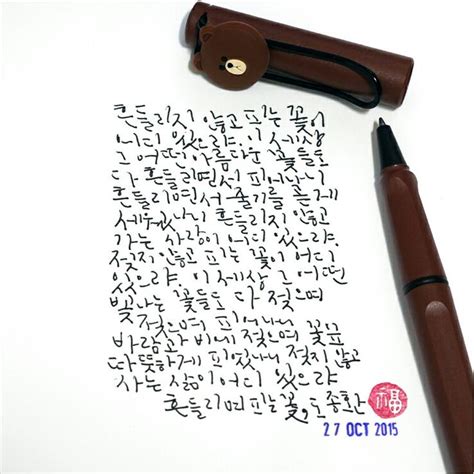 흔들리지 않고 피는 꽃이
어디 있으랴. 이 세상
그 어떤 아름다운 꽃들도
다 흔들리면서 피었나니
흔들리면서 줄기를 곧게
세웠나니 흔들리지 않고
가는 사랑이 어디 있으랴.
젖지 않고 피는 꽃이 어디
있으랴. 이 세상 그 어떤
빛나는 꽃들도 다 젖으며
젖으며 피었나니
바람과 비에 젖으며 꽃잎
따뜻하게 피웠나니 젖지 않고
사는 삶이 어디 있으랴
흔들리며 피는 꽃, 도종환
福
27 OCT 2015